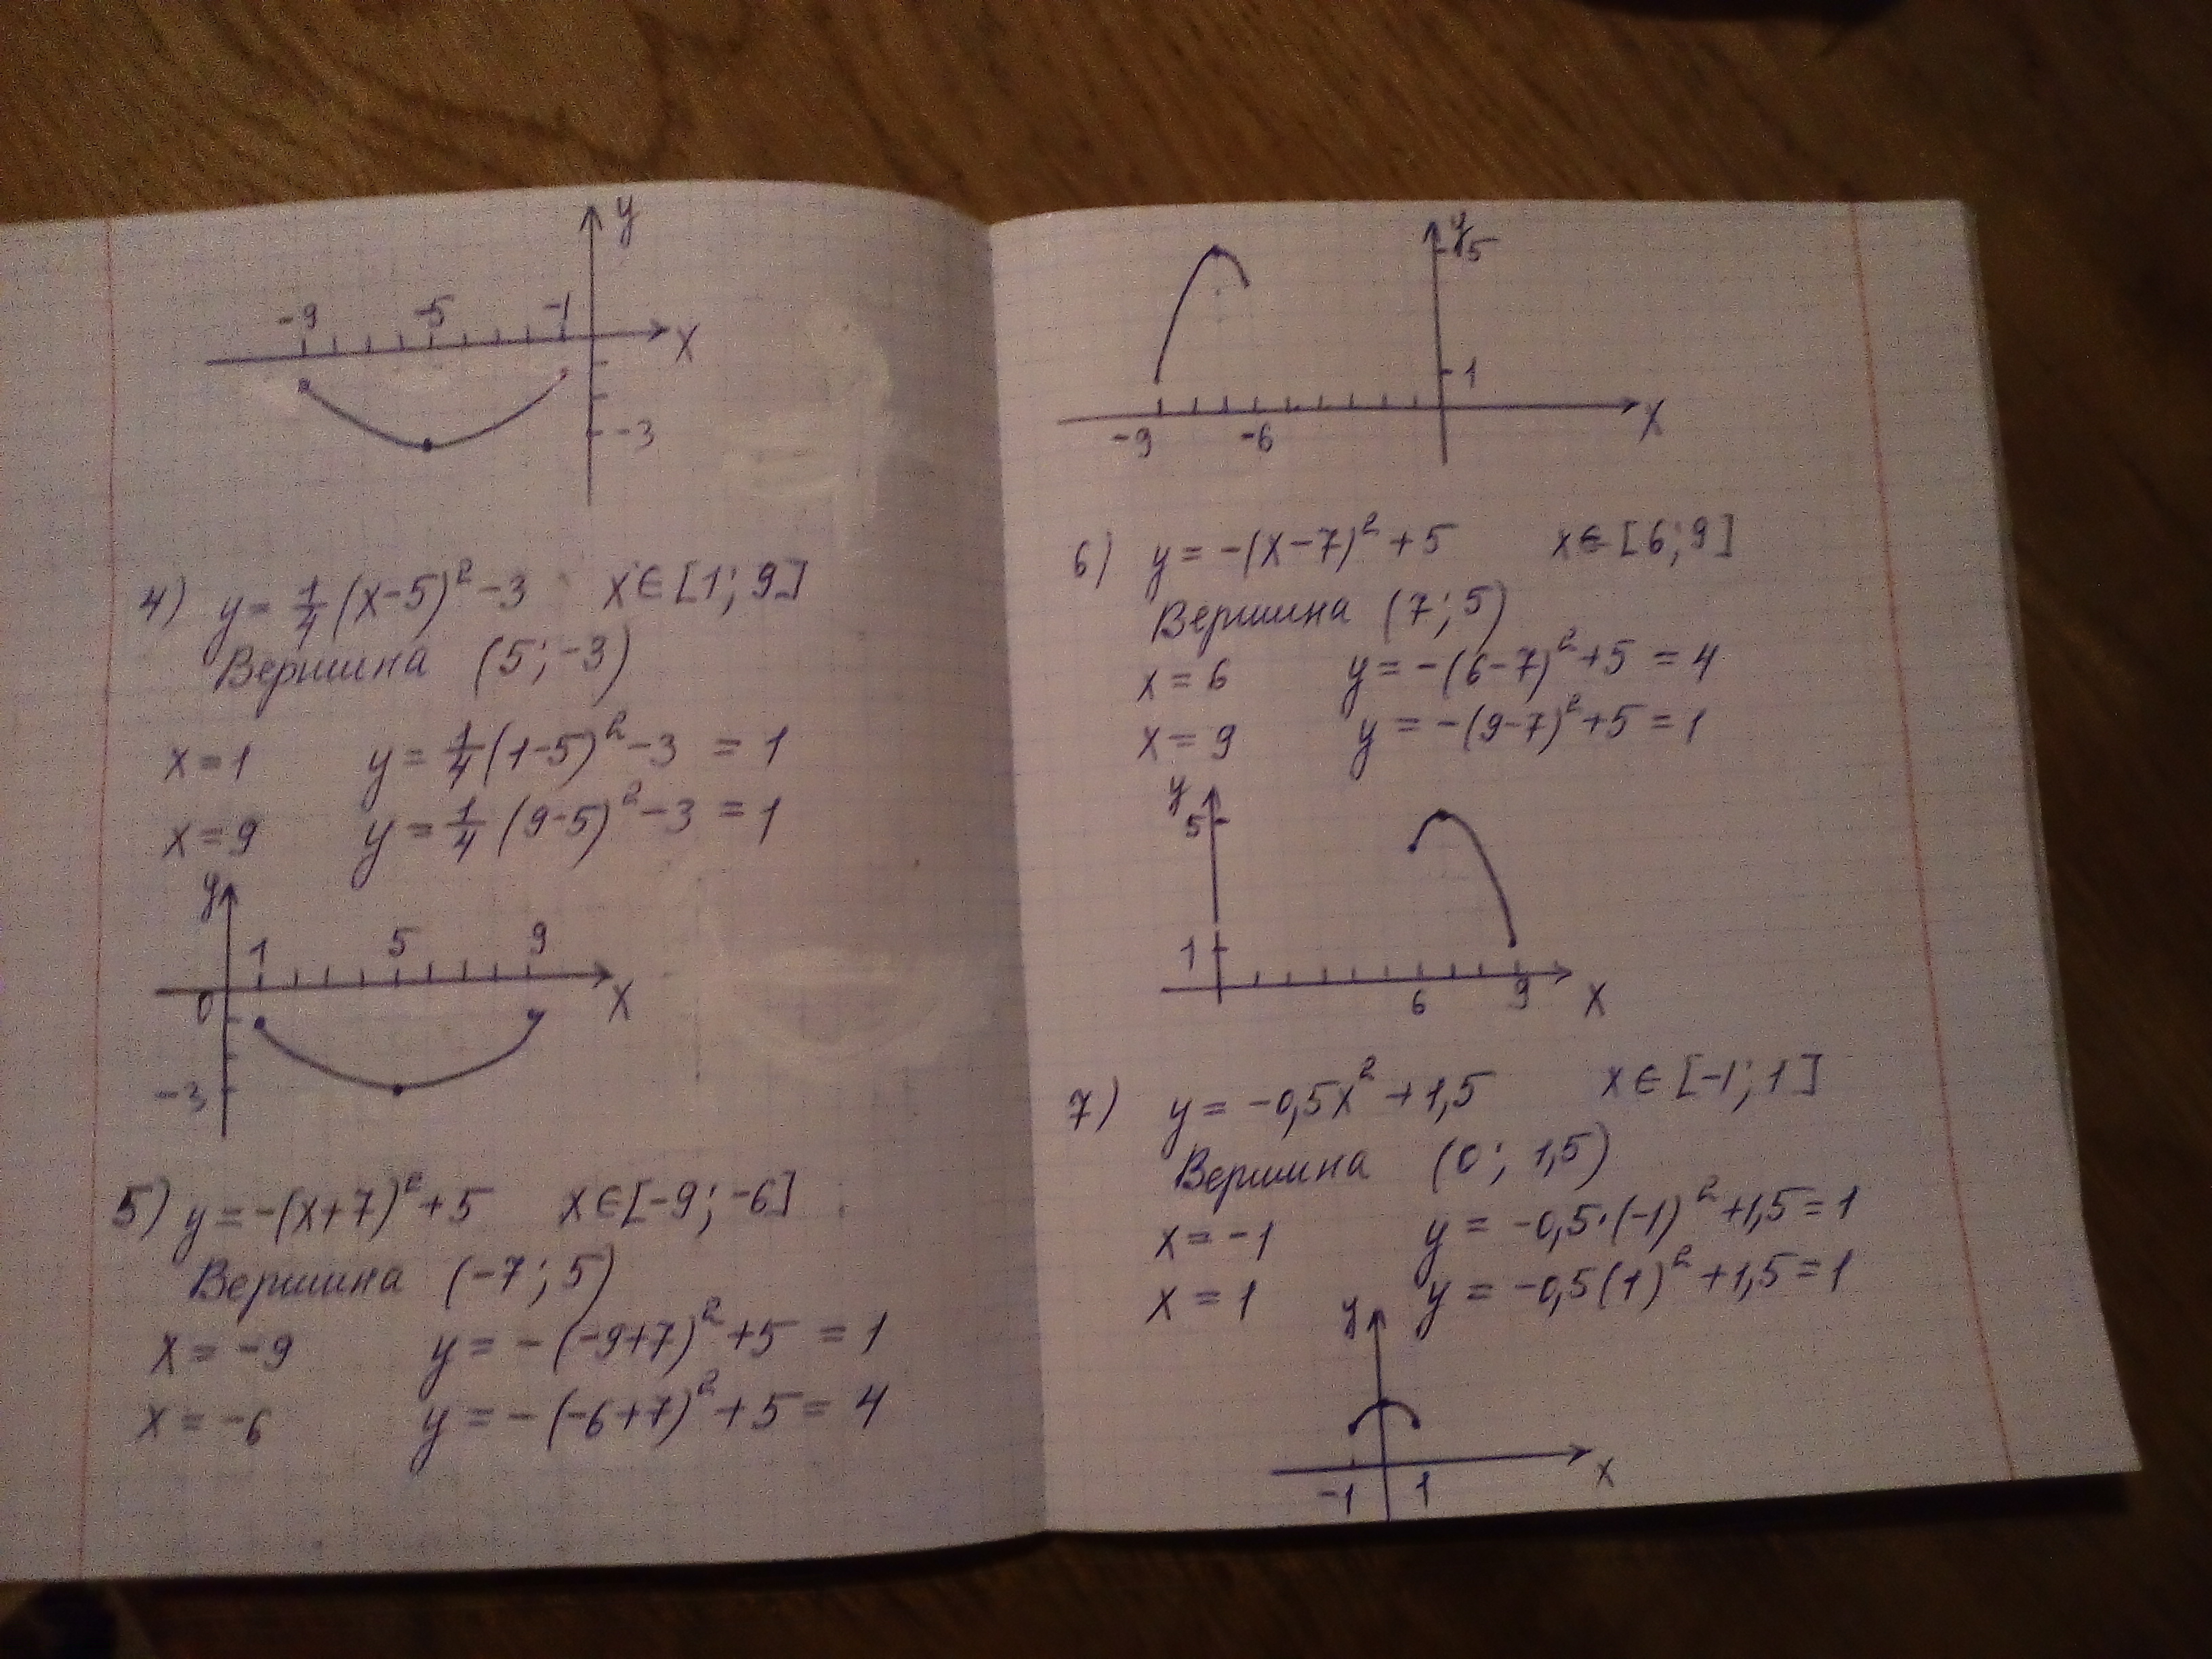 y
-9 -5 -1
x
-3
4) y = 1/4 (x-5)² -3 x ∈ [1; 9]
Вершина (5; -3)
x = 1 y = 1/4 (1-5)² -3 = 1
x = 9 y = 1/4 (9-5)² -3 = 1
y
1 5 9
0 x
-3
5) y = -(x+7)² +5 x ∈ [-9; -6]
Вершина (-7; 5)
x = -9 y = -(-9+7)² +5 = 1
x = -6 y = -(-6+7)² +5 = 4
y 5
1
-9 -6 x
6) y = -(x-7)² +5 x ∈ [6; 9]
Вершина (7; 5)
x = 6 y = -(6-7)² +5 = 4
x = 9 y = -(9-7)² +5 = 1
y
5
1
6 9 x
7) y = -0,5x² +1,5 x ∈ [-1; 1]
Вершина (0; 1,5)
x = -1 y = -0,5·(-1)² +1,5 = 1
x = 1 y = -0,5(1)² +1,5 = 1
y
-1 1 x